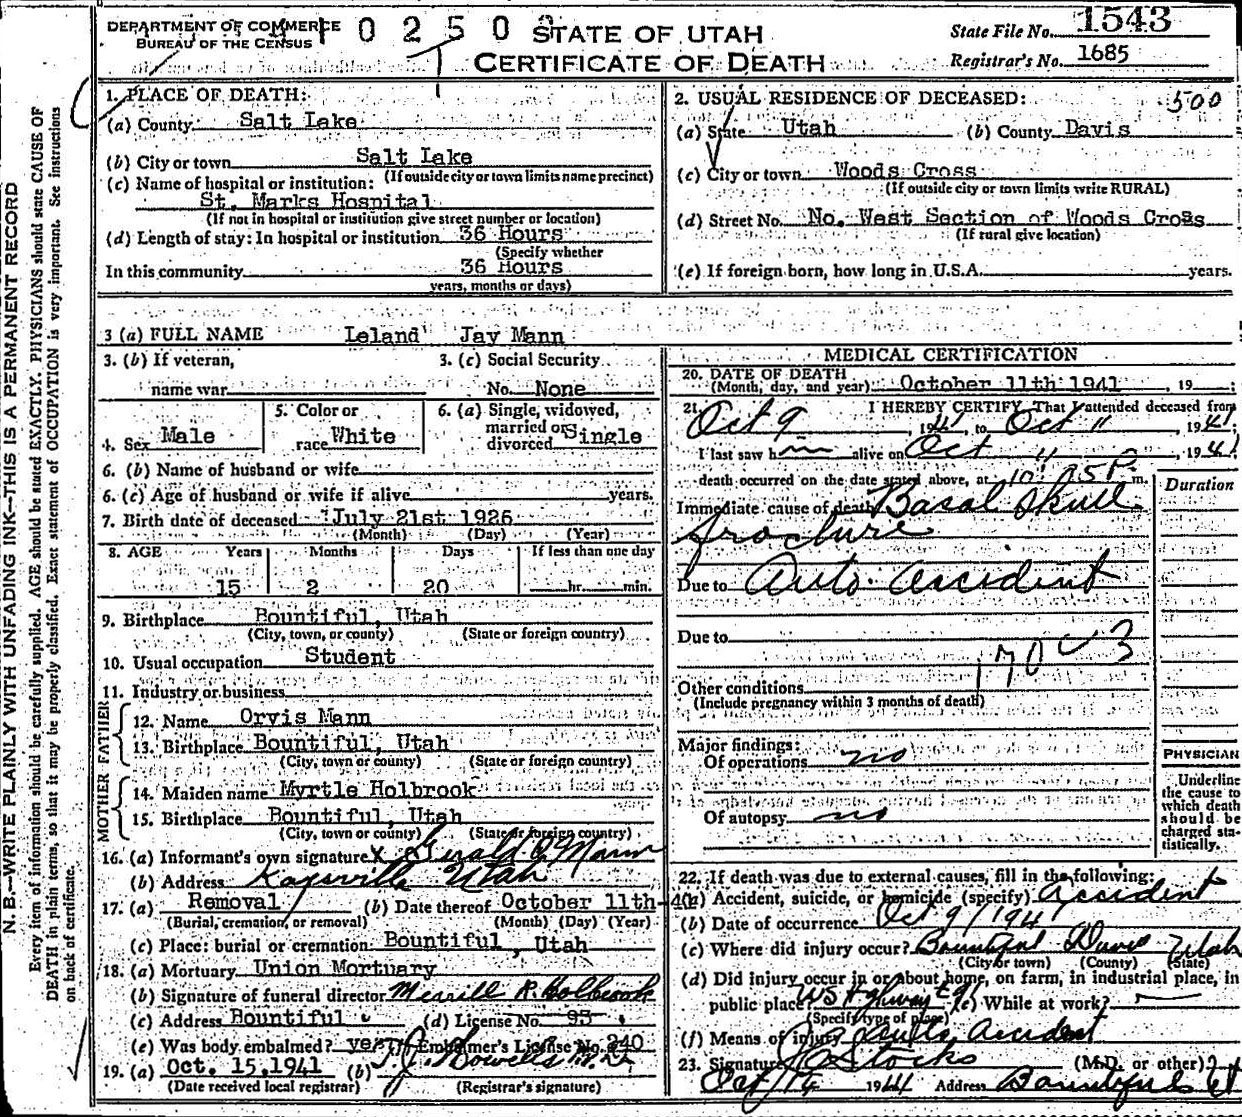 DEPARTMENT OF COMMERCE
BUREAU OF THE CENSUS
0 2 5 0
STATE OF UTAH
CERTIFICATE OF DEATH
State File No. 1543
Registrar's No. 1685
N. B.—WRITE PLAINLY WITH UNFADING INK—THIS IS A PERMANENT RECORD
Every item of information should be carefully supplied. AGE should be stated EXACTLY. PHYSICIANS should state CAUSE OF
DEATH in plain terms, so that it may be properly classified. Exact statement of OCCUPATION is very important. See instructions
on back of certificate.
1. PLACE OF DEATH:
(a) County Salt Lake
(b) City or town Salt Lake
(If outside city or town limits name precinct)
(c) Name of hospital or institution:
St. Marks Hospital
(If not in hospital or institution give street number or location)
(d) Length of stay: In hospital or institution 36 Hours
(Specify whether
In this community 36 Hours
years, months or days)
2. USUAL RESIDENCE OF DECEASED: 500
(a) State Utah (b) County Davis
(c) City or town Woods Cross
(If outside city or town limits write RURAL)
(d) Street No. No. West Section of Woods Cross
(If rural give location)
(e) If foreign born, how long in U.S.A. years.
3 (a) FULL NAME Leland Jay Mann
3. (b) If veteran, 3. (c) Social Security
name war No. None
4. Sex Male
5. Color or race White
6. (a) Single, widowed, married or divorced Single
6. (b) Name of husband or wife
6. (c) Age of husband or wife if alive years.
7. Birth date of deceased July 21st 1926
(Month) (Day) (Year)
8. AGE Years Months Days If less than one day
15 2 20 hr. min.
9. Birthplace Bountiful, Utah
(City, town, or county) (State or foreign country)
10. Usual occupation Student
11. Industry or business
FATHER
12. Name Orvis Mann
13. Birthplace Bountiful, Utah
(City, town or county) (State or foreign country)
MOTHER
14. Maiden name Myrtle Holbrook
15. Birthplace Bountiful, Utah
(City, town or county) (State or foreign country)
16. (a) Informant's own signature x Gerald O. Mann
(b) Address Kaysville Utah
17. (a) Removal (b) Date thereof October 11th-
(Burial, cremation, or removal) (Month) (Day) (Year)
(c) Place: burial or cremation Bountiful, Utah
18. (a) Mortuary Union Mortuary
(b) Signature of funeral director Merrill R. Holbrook
(c) Address Bountiful (d) License No. 93
(e) Was body embalmed? yes Embalmer's License No. 240
19. (a) Oct. 15, 1941 (b)
(Date received local registrar) (Registrar's signature)
MEDICAL CERTIFICATION
20. DATE OF DEATH
(Month, day, and year) October 11th 1941, 19
21. I HEREBY CERTIFY, That I attended deceased from
Oct 9, 1941, to Oct 11, 1941
I last saw him alive on Oct 11, 1941
death occurred on the date stated above, at P. m.
Duration
Immediate cause of death Basal Skull
fracture
Due to Auto. accident
Due to
170
Other conditions
(Include pregnancy within 3 months of death)
Major findings:
Of operations no
Of autopsy no
PHYSICIAN
Underline
the cause to
which death
should be
charged statistically.
22. If death was due to external causes, fill in the following:
(a) Accident, suicide, or homicide (specify) Accident
(b) Date of occurrence Oct 9/1941
(c) Where did injury occur? Bountiful Davis Utah
(City or town) (County) (State)
(d) Did injury occur in or about home, on farm, in industrial place, in
public place
(Specify type of place)
(e) While at work?
(f) Means of injury Auto Accident
23. Signature Stocks (M.D. or other)
Oct 14 1941 Address Bountiful Ut